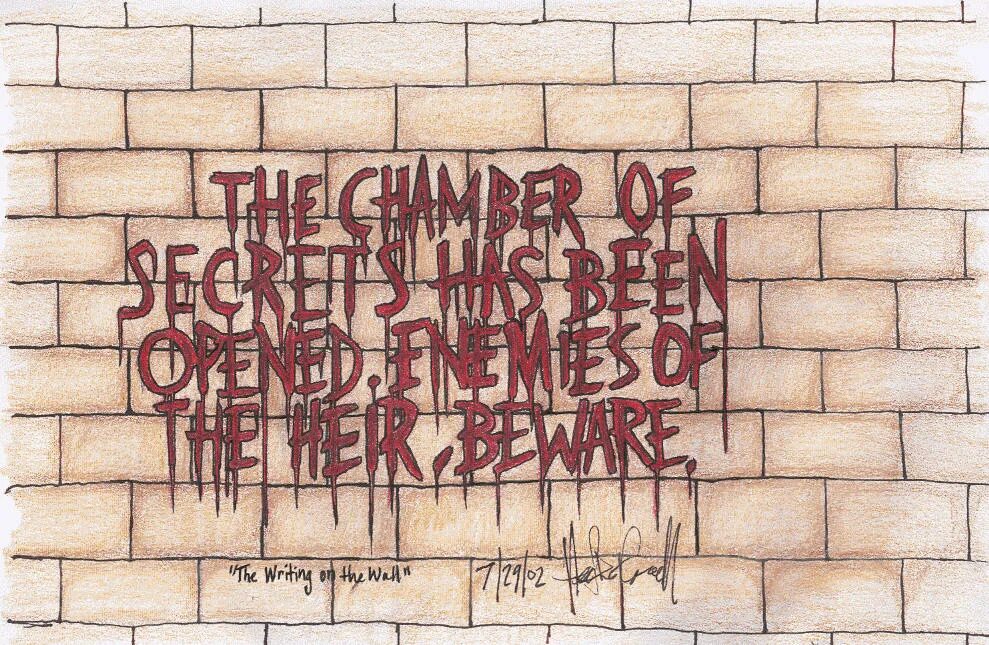 THE CHAMBER OF
SECRETS HAS BEEN
OPENED. ENEMIES OF
THE HEIR, BEWARE.
"The Writing on the Wall" 7/29/02